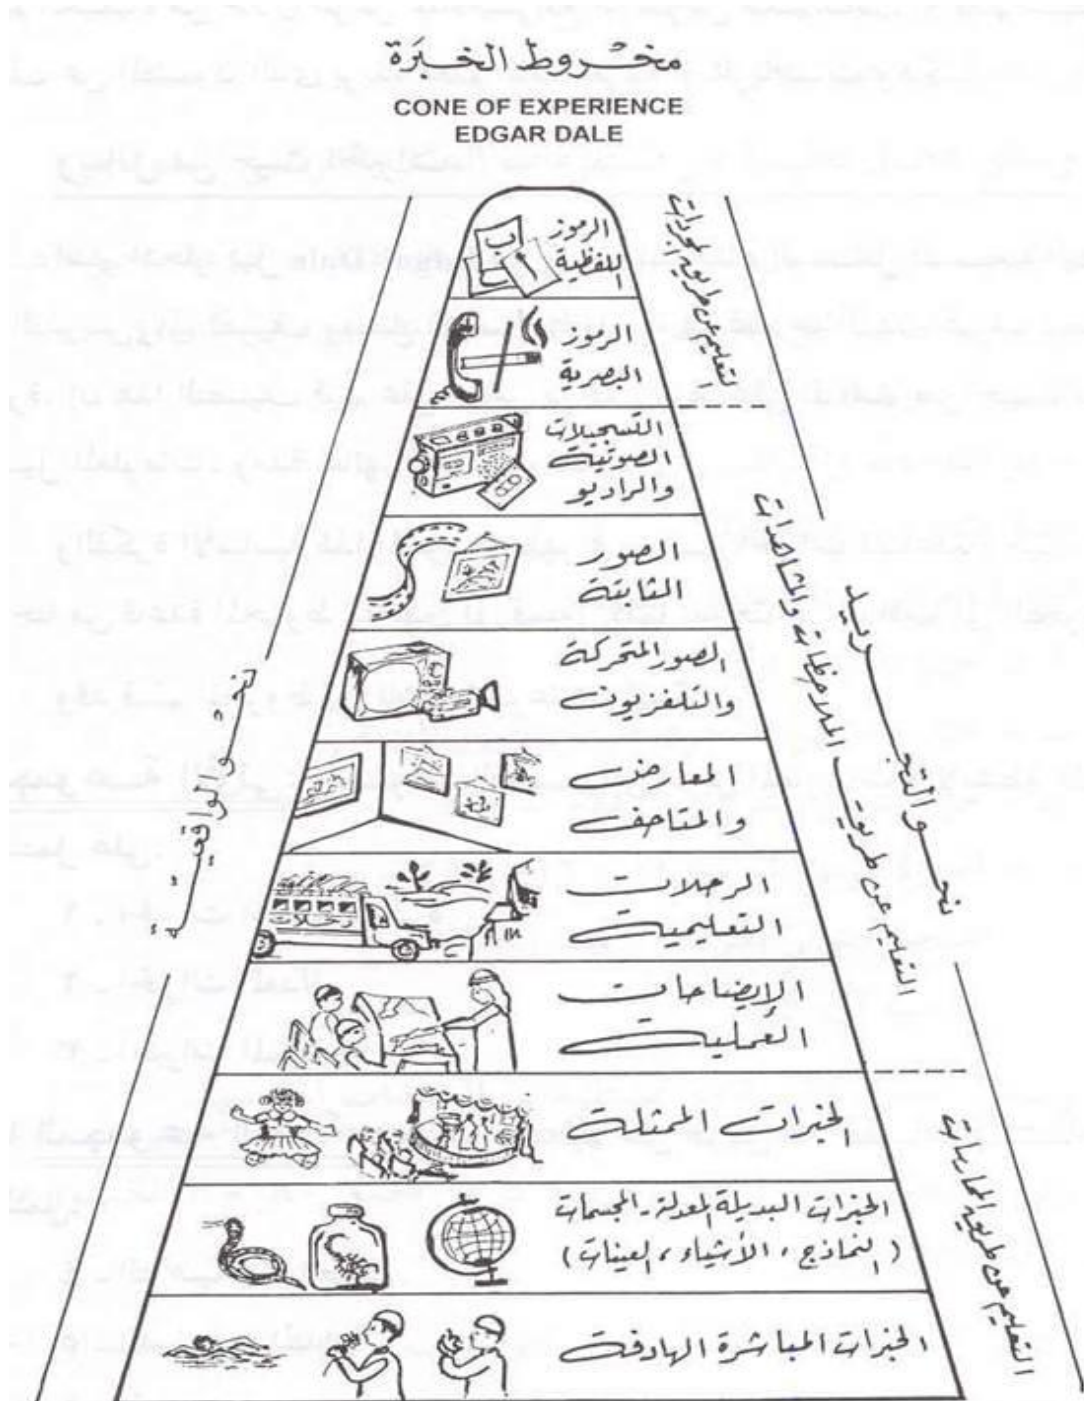 مخروط الخبرة
CONE OF EXPERIENCE
EDGAR DALE
الرموز
اللفظية
الرموز
البصرية
التسجيلات
الصوتية
والراديو
الصور
الثابتة
الصور المتحركة
والتلفزيون
المعارض
والمتاحف
الرحلات
التعليمية
رحلات
الإيضاحات
العملية
الخبرات الممثلة
الخبرات البديلة المعدلة - المجسمات
(النماذج ، الأشياء ، العينات)
الخبرات المباشرة الهادفة
التعليم عن طريق المجردات
التعليم عن طريق الملاحظات والمشاهدات
التعليم عن طريق الممارسات
نحو التجريد
نحو الواقعية